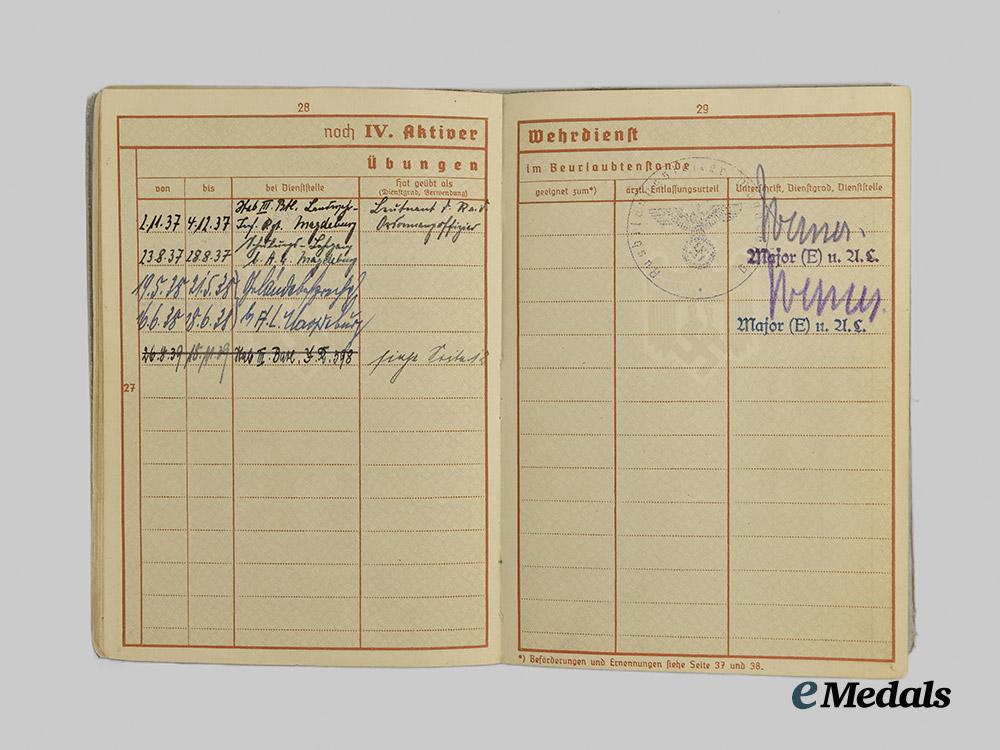 28
noch IV. Aktiver
Übungen
von bis bei Dienststelle Hat geübt als
(Dienstgrad, Verwendung)
Stab III. Btl. Landwehr- Leutnant d. R. a. D.
2.11.37 4.12.37 Inf. Rgt. Magdeburg Ordonnanzoffizier
Schulungs-
23.8.37 28.8.37 Magdeburg
19.5.38 21.5.38 Geländebesprechg
16.6.38 18.6.38 Magdeburg
26.8.39 Stab siehe Seite
27
29
Wehrdienst
im Beurlaubtenstande
geeignet zum*) ärztl. Entlassungsurteil Unterschrift, Dienstgrad, Dienststelle
Major (E) u. A.L.
Major (E) u. A.L.
*) Beförderungen und Ernennungen siehe Seite 37 und 38.
eMedals